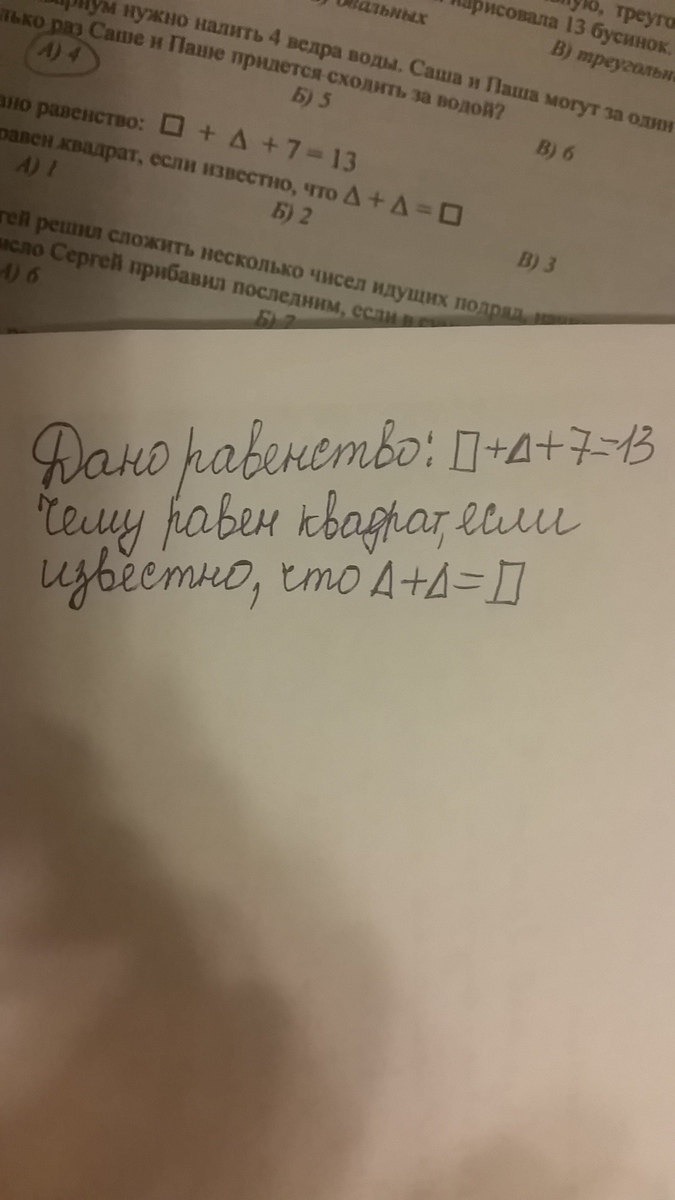 овальных
нарисовала 13 бусинок.
В)
нужно налить 4 ведра воды. Саша и Паша могут за один
раз Саше и Паше придется сходить за водой?
А) 4
Б) 5
В) 6
равенство: □ + Δ + 7 = 13
равен квадрат, если известно, что Δ + Δ = □
А) 1
Б) 2
В) 3
решил сложить несколько чисел идущих подряд,
Сергей прибавил последним, если в
А) 6
Б) 7
Дано равенство: □+Δ+7=13
Чему равен квадрат, если
известно, что Δ+Δ=□